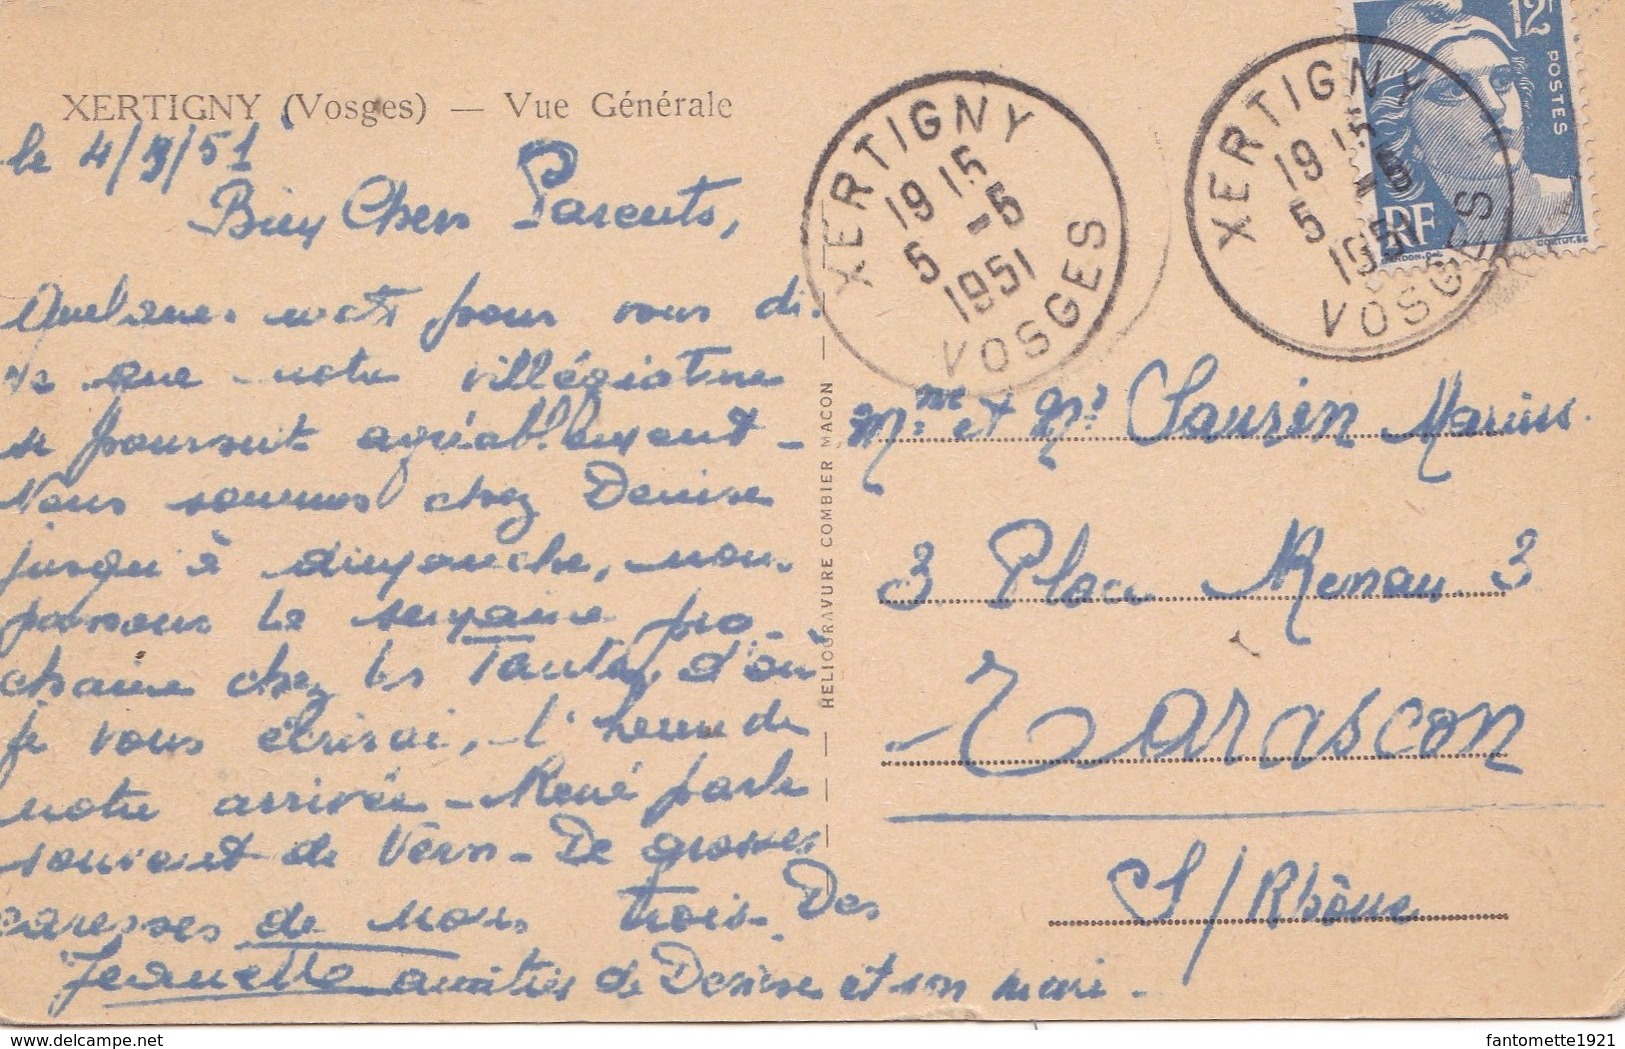 XERTIGNY (Vosges) — Vue Générale
le 4/5/51
Bien Chers Parents,
Quelques mots pour vous di-
re que notre villégiature
se poursuit agréablement -
Nous sommes chez Denise
jusqu'à dimanche, nous
passons la semaine pro-
chaine chez les Tantes, d'où
je vous écrirai, l'heure de
notre arrivée - René parle
souvent de Vern - De grosses
caresses de nous trois. Des
Jeannette amitiés de Denise et son mari -
HELIOGRAVURE COMBIER MACON
XERTIGNY
19 15
5 -5
1951
VOSGES
XERTIGNY
19 15
5 -5
1951
VOSGES
12F
POSTES
RF
Mme et Mr Marius.
3 Place 3
Tarascon
S/Rhône
delcampe.net
fantomette1921